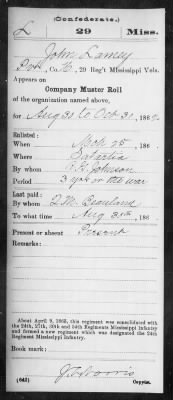 (Confederate.)
L 29 Miss.
John Lamey
Pvt, Co. K, 29 Reg't Mississippi Vols.
Appears on
Company Muster Roll
of the organization named above,
for Aug 31 to Oct 31, 186
Enlisted:
When 25, 186
Where Satartia
By whom Johnson
Period 3 yrs or the war
Last paid:
By whom
To what time Aug 31st, 186
Present or absent Present
Remarks:
About April 9, 1865, this regiment was consolidated with
the 24th, 27th, 30th and 34th Regiments Mississippi Infantry
and formed a new regiment which was designated the 24th
Regiment Mississippi Infantry.
Book mark:
(642) Norris
Copyist.